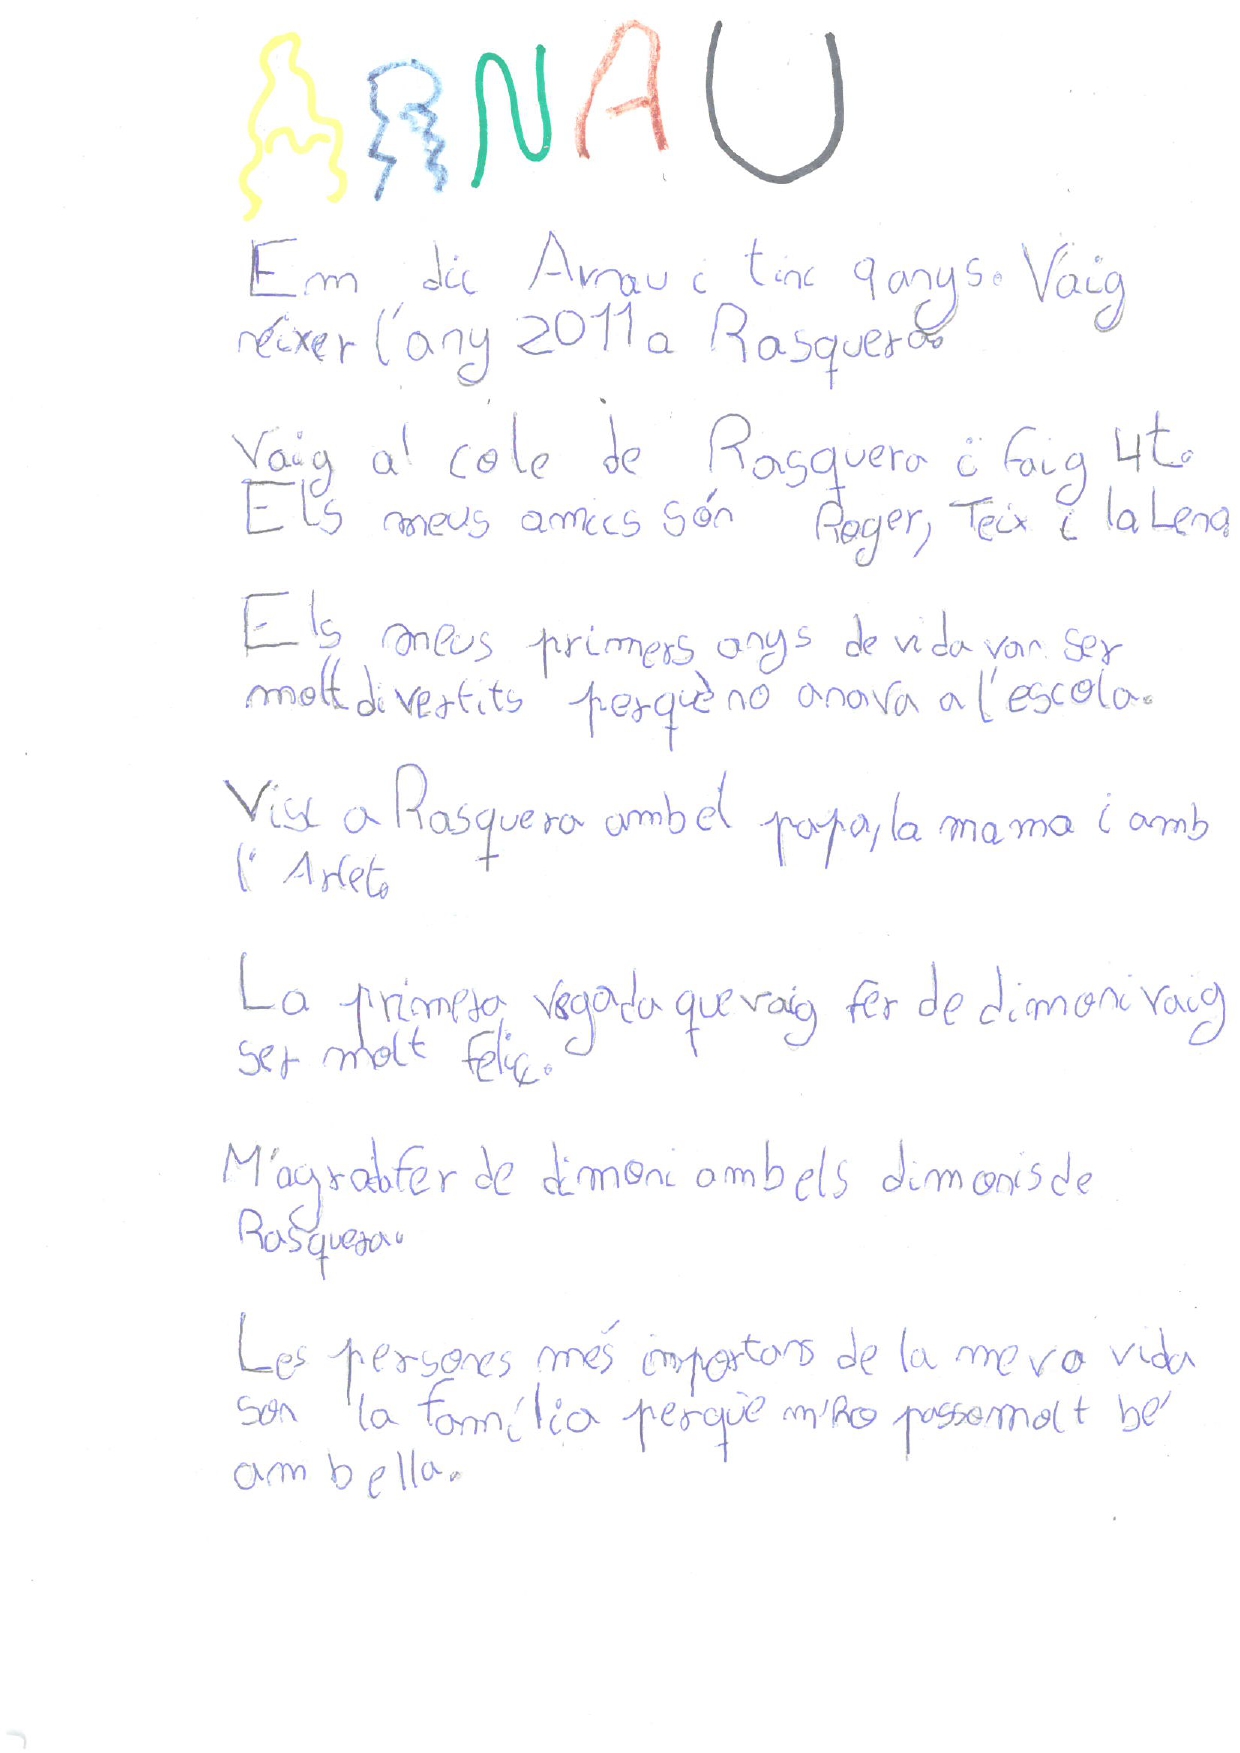 ARNAU
Em dic Arnau i tinc 9 anys. Vaig
néixer l'any 2011 a Rasquera.
Vaig al cole de Rasquera i faig 4t.
Els meus amics són Roger, Teix i la Lena
Els meus primers anys de vida van ser
molt divertits perquè no anava a l'escola.
Visc a Rasquera amb el papa, la mama i amb
l'Arlet.
La primera vegada que vaig fer de dimoni vaig
ser molt feliç.
M'agrada fer de dimoni amb els dimonis de
Rasquera.
Les persones més importans de la meva vida
son la família perquè m'ho passo molt bé
amb ella.